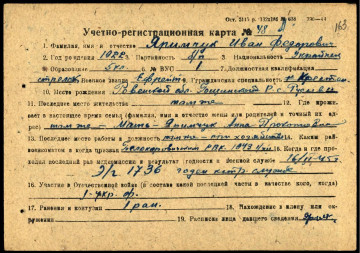 163
Учетно-регистрационная карта № 48
1. Фамилия, имя и отчество Яримчук Иван Федорович
2. Год рождения 1922 Партийность б/п 3. Национальность Украинец
5. Образование 5 кл. 6. № ВУС 1 7. Должностная квалификация
стрелок Военное звание Ефрейтор Гражданская специальность Крестьян
10. Место рождения Ровенская обл. Гощанский р. с.
11. Последнее место жительства там же 12. Где прожи-
вает в настоящее время семья (фамилия, имя и отчество жены или родителей и точный их ад-
рес) там же - мать Яримчук Анна Прокоповна
13. Последнее место работы там же 14. Каким рай-
военкоматом и когда призван РВК 1943 15. Когда и где про-
ходил последний раз медкомиссию и результат годности к военной службе 16/II-45 г.
Э/г 1736 годен к стр. службе
16. Участие в Отечественной войне (в составе какой последней части, в качестве кого, когда)
1-Укр. ф.
17. Ранения и контузии 1 ран. 18. Нахождение в плену или ок-
ружении 19. Расписка лица давшего сведения